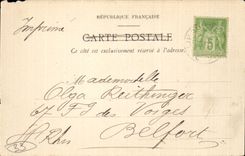 RÉPUBLIQUE FRANÇAISE
Imprimé
CARTE POSTALE
Ce côté est exclusivement réservé à l'adresse
5
Mademoiselle
Olga Reithinger
67 Fg des Vosges
Belfort
Ht Rhin
23